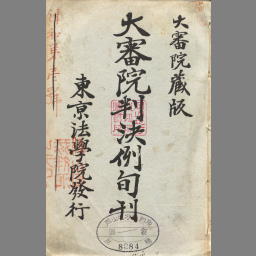 大審院藏版
大審院判決例旬刊
東京法學院發行
8284